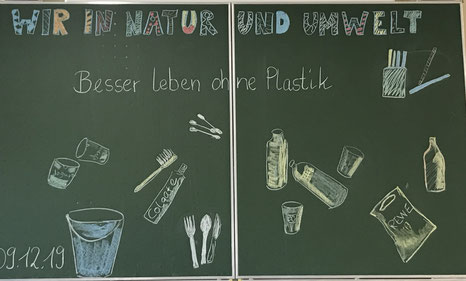 WIR IN NATUR UND UMWELT
Besser leben ohne Plastik
Colgate
REWE
09.12.19